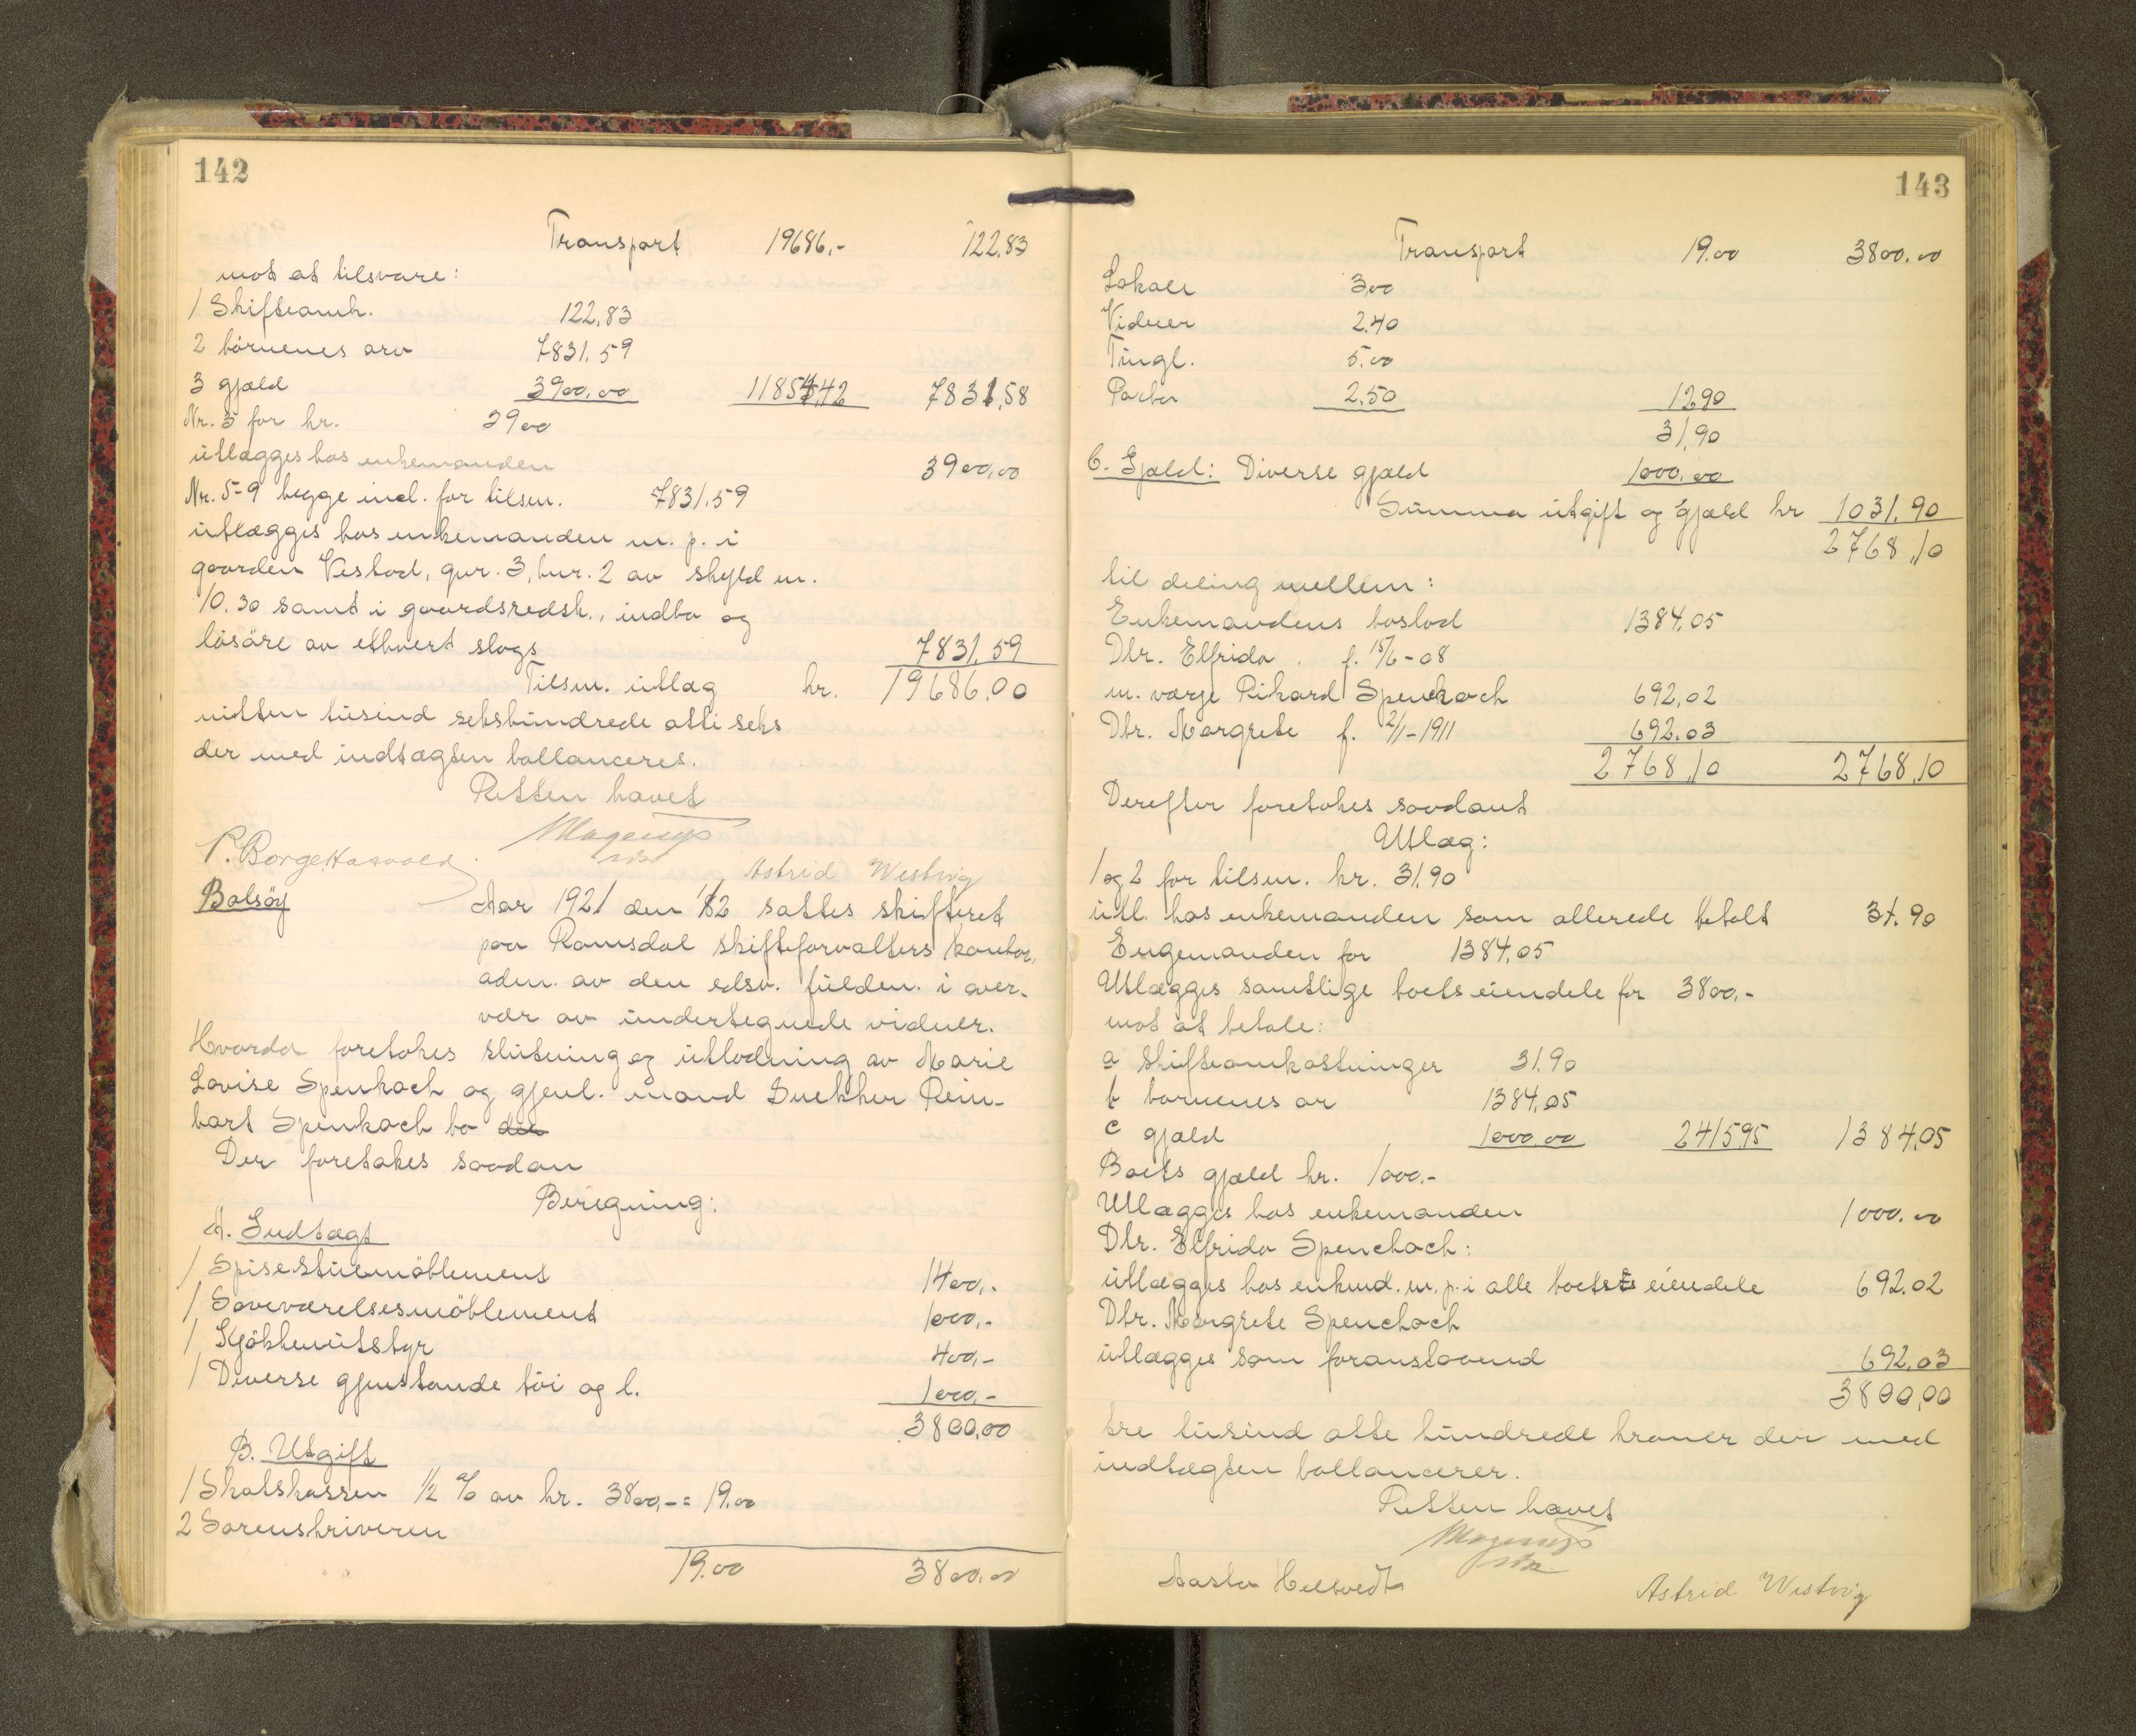 142
Transport 19686.- 122.83
mot at tilsvare:
1 Skifteomk. 122,83
2 børnenes arv 7831.59
3 gjæld 3900.00 11854,42 7831,58
Nr. 3 for kr. 3900
utlægges hos enkemanden 3900,00
Nr. 5-9 begge incl. for tilsm. 7831.59
utlægges hos enkemanden m. p. i
gaarden Vestad, gnr. 3, bnr. 2 av skyld m.
10.30 samt i gaardsredsk., indbo og
løsøre av ethvert slags 7831.59
Tilsm. utlæg kr. 19686.00
nitten tusind sekshundrede otti seks
der med indtægten ballanceres.
Retten hævet
Astrid Westvig
Bolsøy
Aar 1921 den 1/2 sattes skifteret
paa Romsdal skifteforvalters kontor,
adm. av den edsv. fuldm. i over-
vær av undertegnede vidner.
Hvorda foretokes slutning og utlodning av Marie
Lovise Spenkoch og gjenl. mand Buekker Rein-
hart Spenkoch bo der
Der foretakes saadan
Beregning:
A. Indtægt
1 Spisestuemøblement 1400,-
1 Soveværelsesmøblement 1000,-
1 Kjøkkenutstyr 400,-
1 Diverse gjenstande tøi og l. 1000,-
3800,00
B. Utgift
1 Skatskassen 1/2 % av kr. 3800,- = 19.00
2 Sorenskriveren
19.00 3800.00
143
Transport 19.00 3800.00
Lokale 3,00
Vidner 2.40
Tingl. 5.00
Porto 2,50 12,90
31,90
C. Gjæld: Diverse gjæld 1000,00
Summa utgift og gjæld kr 1031.90
2768,10
til deling mellem:
Enkemandens boslod 1384.05
Dtr. Elfrida. f. 15/6-08
m. værje Rikard Spenkoch 692,02
Dtr. Margrete f. 2/1-1911 692.03
2768,10 2768,10
Derefter foretokes saadant
Utlæg:
1 og 2 for tilsm. kr. 31.90
utl. hos enkemanden som allerede betalt 31.90
Engemanden for 1384.05
Utlægges samtlige boets eiendele for 3800.-
mot at betale:
a skifteomkostninger 31.90
b børnenes ar 1384.05
c gjæld 1000.00 2415,95 1384,05
Boets gjæld kr. 1000.-
Utlægges hos enkemanden 1000.00
Dtr. Elfrida Spenckoch:
utlægges hos enkmd. m. p. i alle boets eiendele 692.02
Dtr. Margrete Spenckoch
utlægges som foranstaaend 692,03
3800,00
tre tusind otte hundrede kroner der med
indtægten ballancerer.
Retten hævet
Astrid Westvig